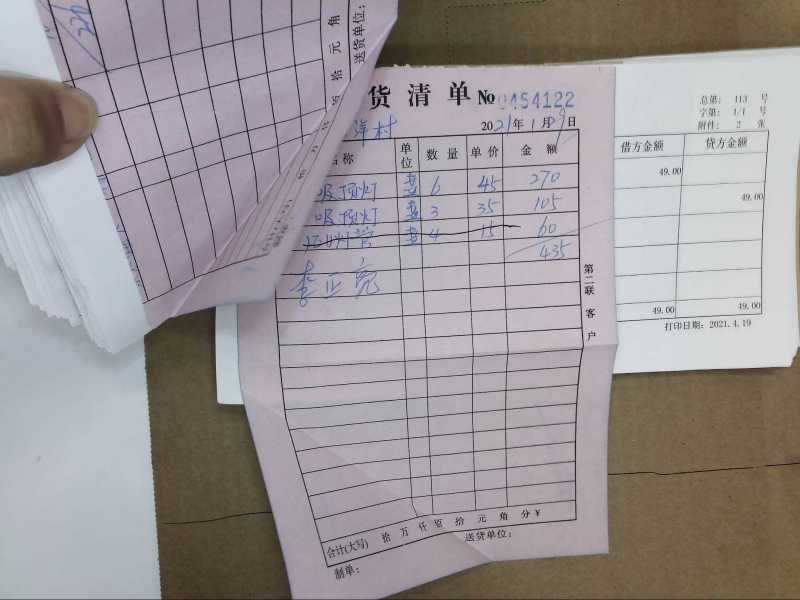 226
拾元角
送货单位：
货清单 № 0454122
洋村 2021年1月29日
名称 单位 数量 单价 金额
吸顶灯 套 6 45 270
吸顶灯 套 3 35 105
管 套 4 15 60
435
李正亮
第二联 客户
合计(大写) 拾 万 仟 佰 拾 元 角 分 ¥
制单： 送货单位：
总第： 113 号
字第： 1/1 号
附件： 2 张
借方金额 贷方金额
49.00
49.00
49.00 49.00
打印日期：2021.4.19